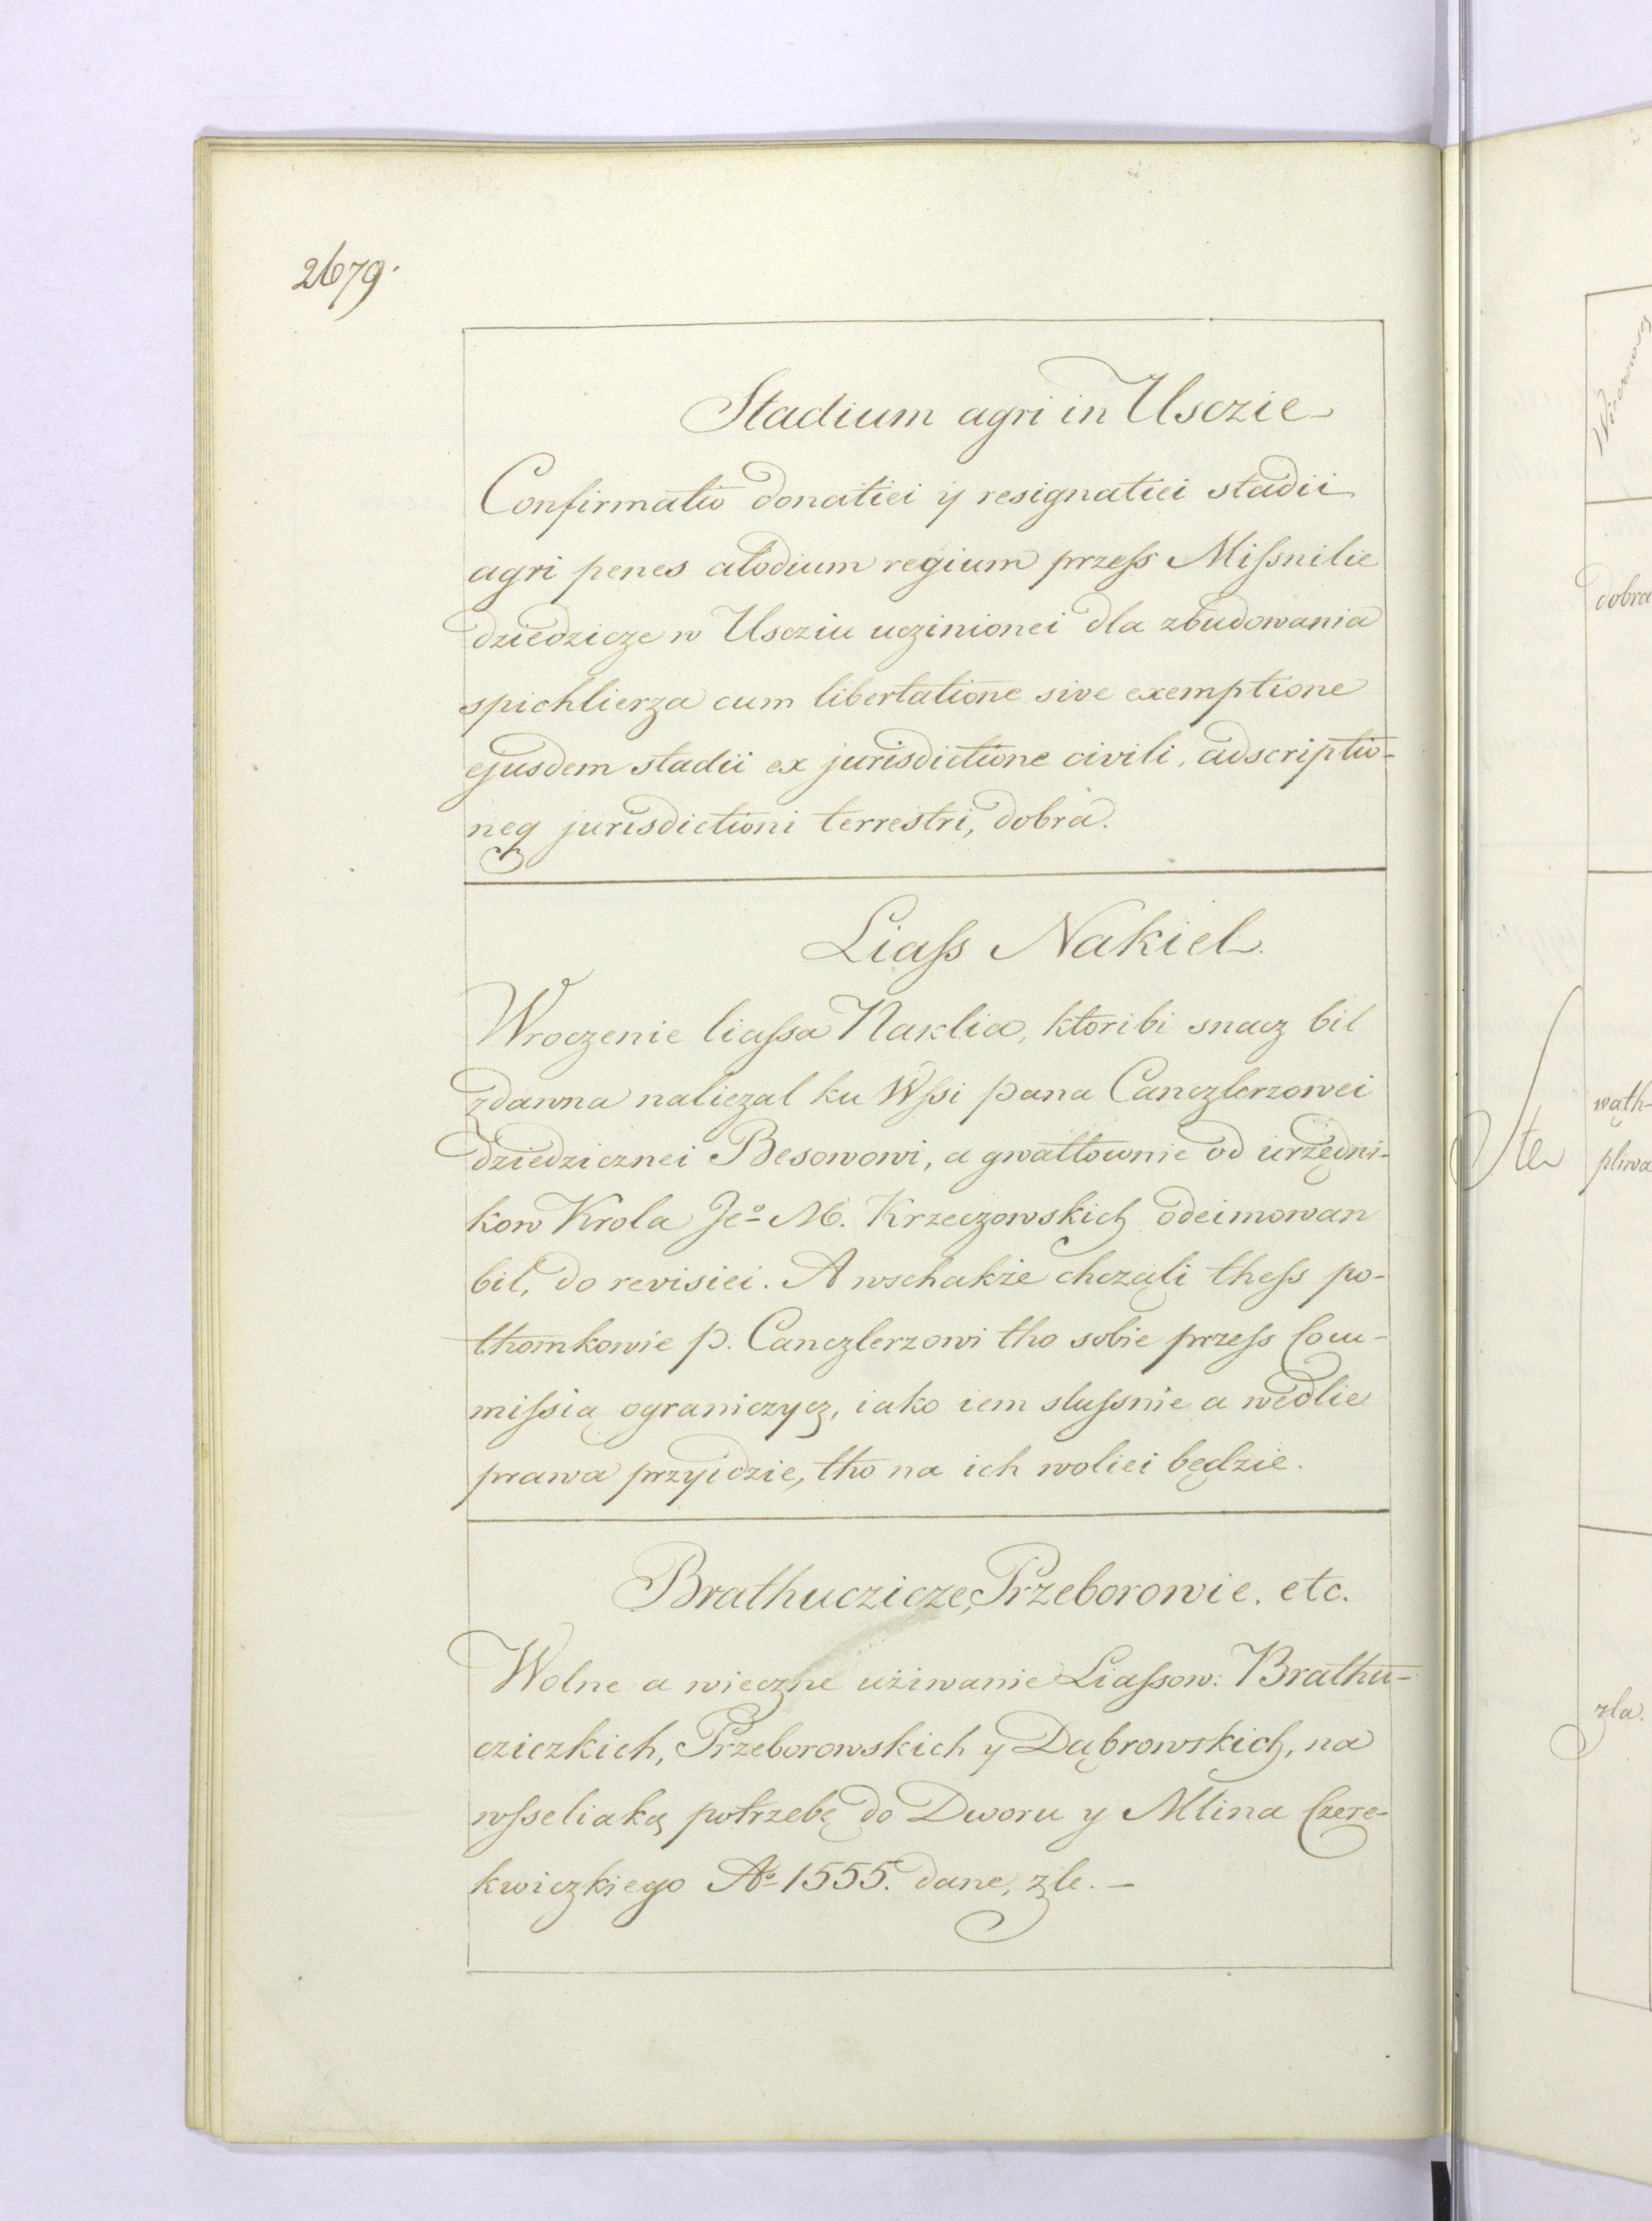 2679.
Stadium agri in Usczie
Confirmatio donatiei y resignatiei stadii
agri penes alodium regium przeſs Miſsnilie
dziedzicze w Uscziu uczinionei dla zbudowania
spichlierza cum libertatione sive exemptione
ejusdem stadii ex jurisdictione civili, adscriptio-
neq jurisdictioni terrestri, dobra.
Liaſs Nakiel.
Wroczenie liaſsa Naklia, ktoribi snacz bil
zdawna naliezal ku Wſsi pana Canczlerzowei
dziedzicznei Besowowi, a gwałtownie od urzędni-
kow Krola Jeº M. Krzeczowskich odeimowan
bil, do revisiei. A wschakże chcząli theſs po-
thomkowie p. Canczlerzowi tho sobie przeſs Com-
miſsią ograniczycz, iako iem sluſsnie a wedlie
prawa przyidzie, tho na ich woliei będzie.
Brathuczicze, Przeborowie. etc.
Wolne a wieczne użiwanie Liaſsow: Brathu-
cziczkich, Przeborowskich y Dąbrowskich, na
wſseliaką potrzebę do Dworu y Mlina Czere-
kwiczkiego Aº 1555. dane, zle. —
dobra
wąth-
pliwa
zla.